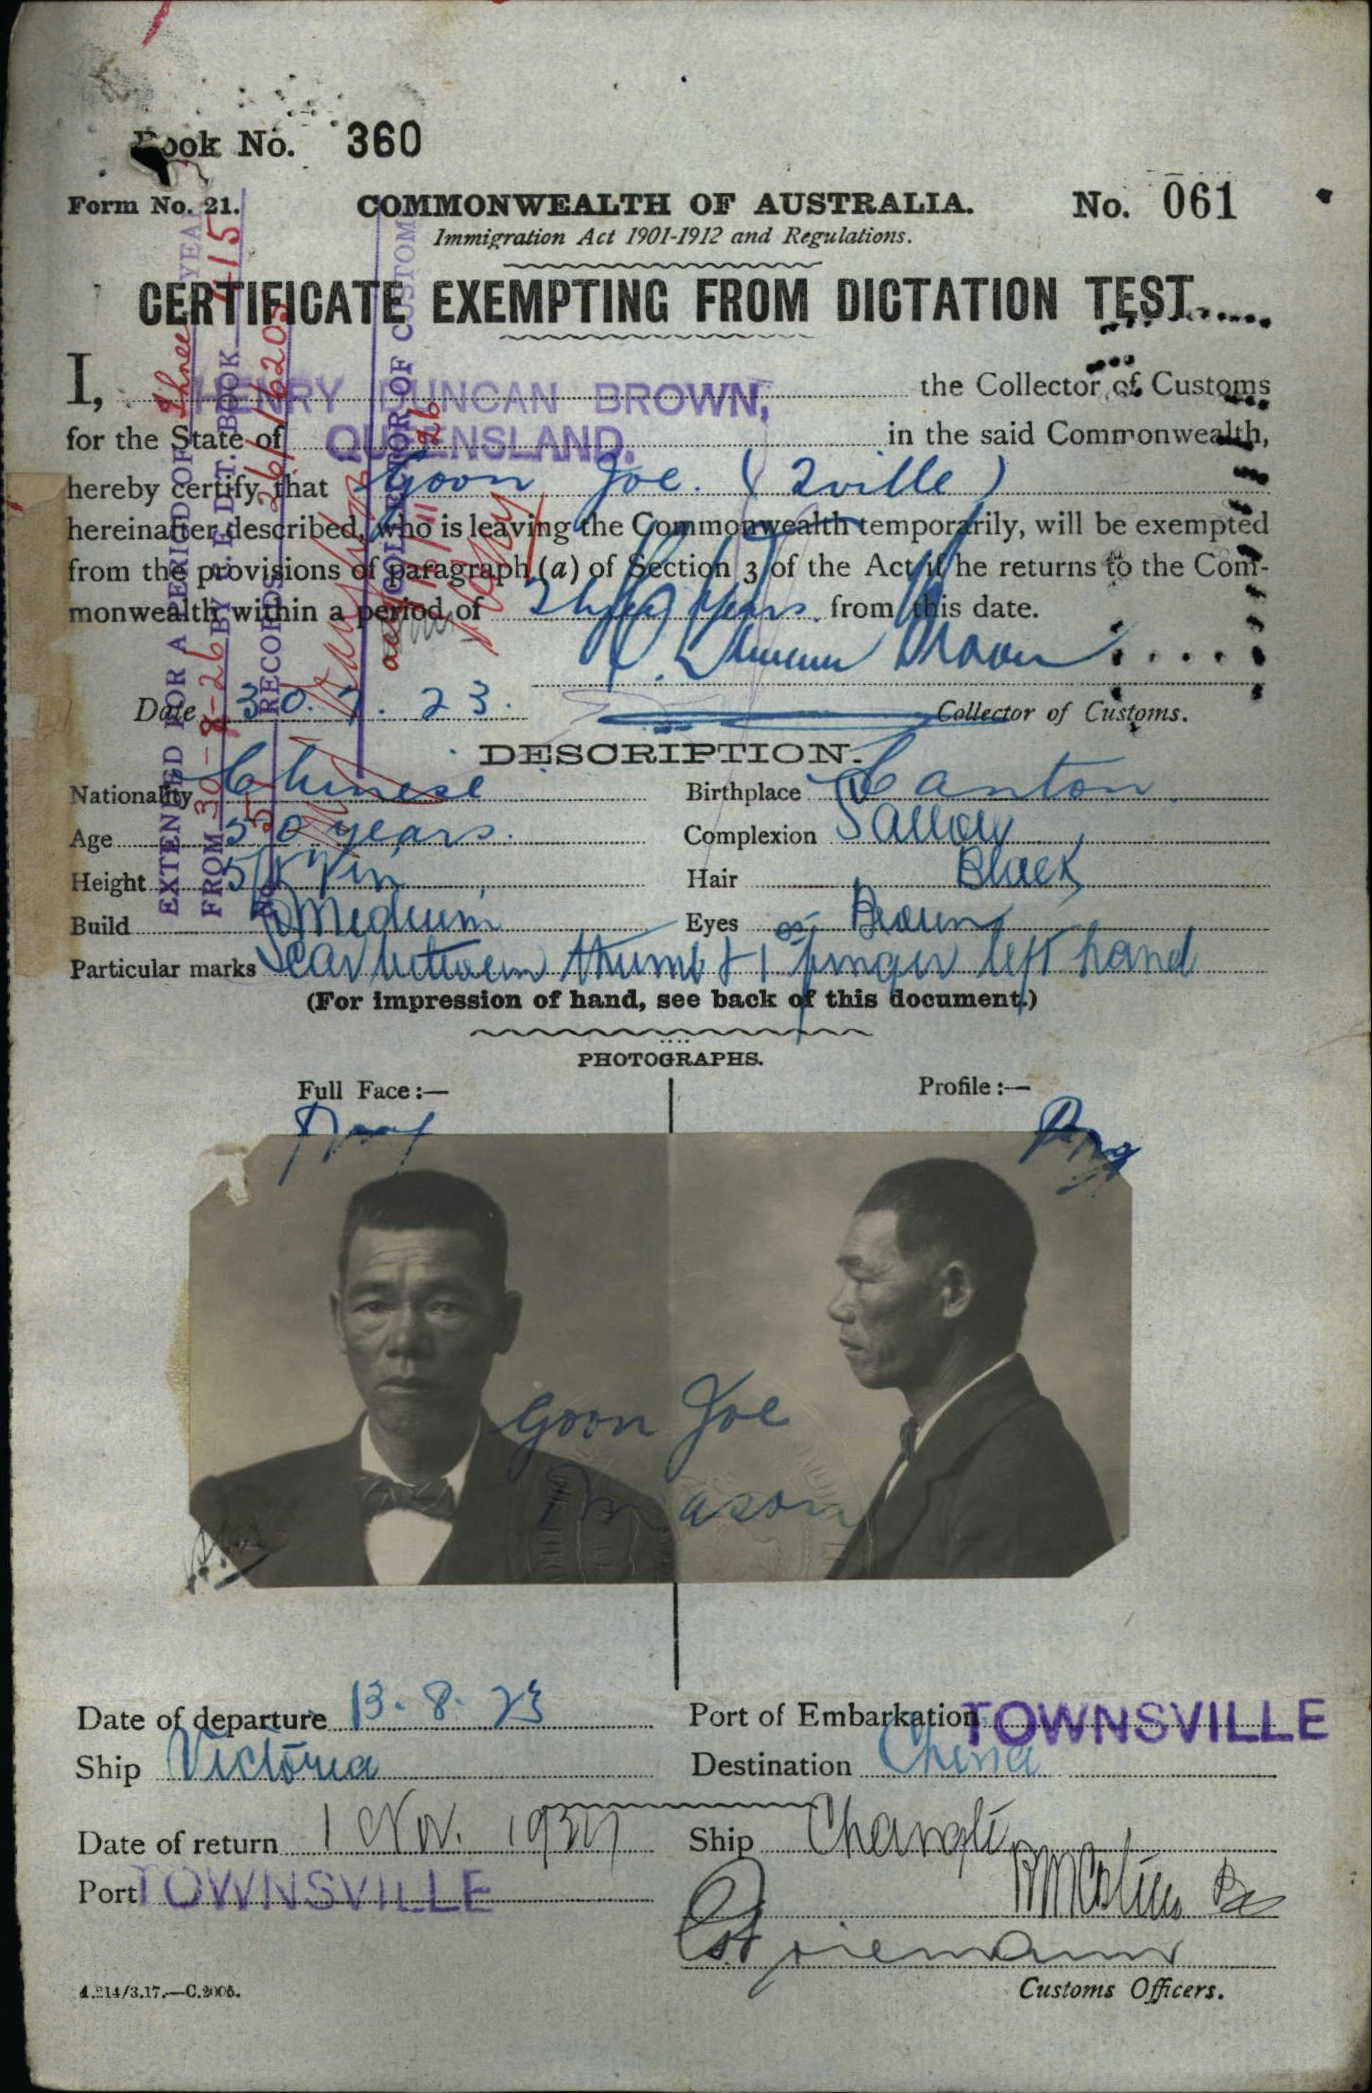 Book No. 360
Form No. 21. COMMONWEALTH OF AUSTRALIA. No. 061
Immigration Act 1901-1912 and Regulations.
CERTIFICATE EXEMPTING FROM DICTATION TEST
I, HENRY DUNCAN BROWN, the Collector of Customs
for the State of QUEENSLAND. in the said Commonwealth,
hereby certify that Goon Joe. (Tville)
hereinafter described, who is leaving the Commonwealth temporarily, will be exempted
from the provisions of paragraph (a) of Section 3 of the Act if he returns to the Com-
monwealth within a period of years from this date.
H. Duncan Brown
Date 30. 7. 23. Collector of Customs.
EXTENDED FOR A PERIOD OF three YEAR
FROM 30-8-26 BY C.E.D.T. BOOK 415
No. 5 RECORDS 26/16205
COLLECTOR OF CUSTOMS
DESCRIPTION.
Nationality Chinese Birthplace Canton
Age 50 years. Complexion Sallow
Height Hair Black
Build Medium Eyes Brown
Particular marks Scar between thumb & 1st finger left hand
(For impression of hand, see back of this document.)
PHOTOGRAPHS.
Full Face:— Profile:—
Goon Joe
Mason
Date of departure 13. 8. 23 Port of Embarkation TOWNSVILLE
Ship Victoria Destination China
Date of return 1 Nov. Ship Changte
Port TOWNSVILLE
Customs Officers.